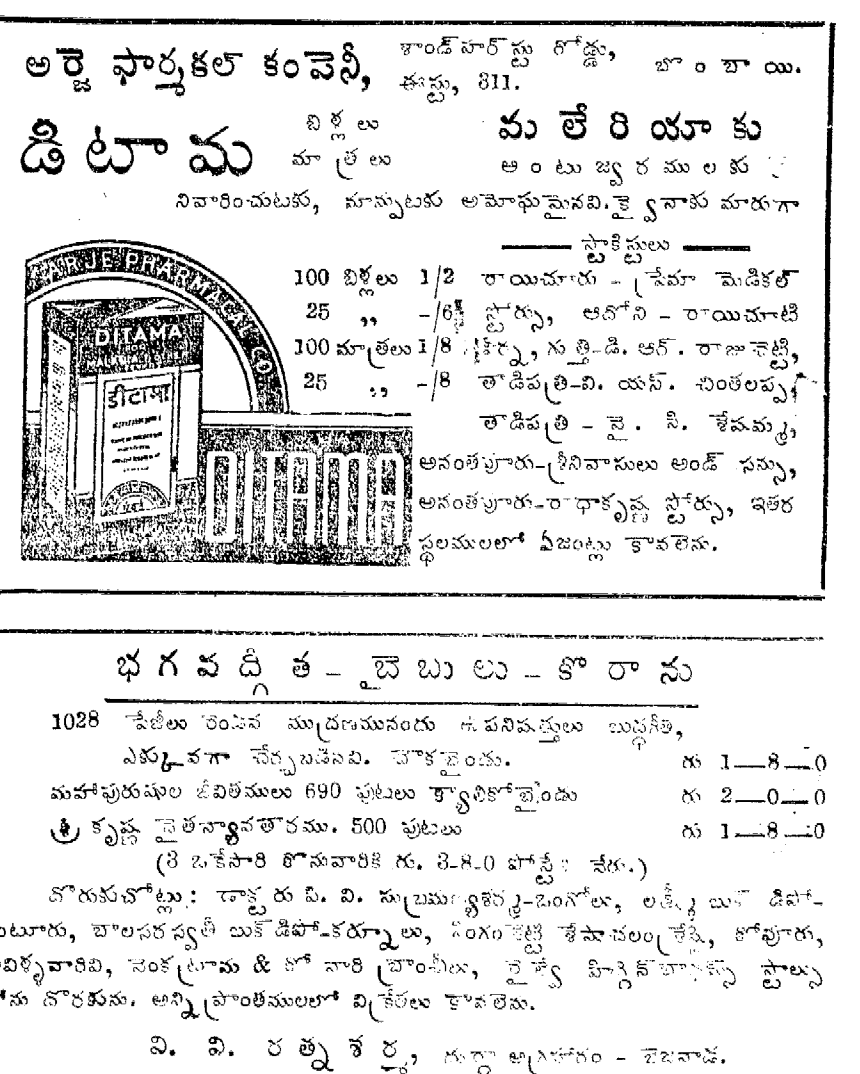 అర్జె ఫార్మకల్ కంపెనీ, శాండ్ హర్స్ట్ రోడ్డు, ఈస్టు, 311. బొంబాయి.
డిటామ బిళ్లలు మాత్రలు మలేరియాకు
అంటుజ్వరములకు
నివారించుటకు, మాన్పుటకు అమోఘమైనవి. క్వైనాకు మారుగా
స్టాకిస్టులు
ARJE PHARMACAL CO
DITAMA
डीटामा
DITAMA
100 బిళ్లలు 1/2 రాయిచూరు - ప్రేమా మెడికల్
25 ,, -/6 స్టోర్సు, ఆదోని - రాయిచూటి
100 మాత్రలు 1/8 గుత్తి-డి. ఆర్. రాజుశెట్టి,
25 ,, -/8 తాడిపత్రి-వి. యస్. చింతలప్ప,
తాడిపత్రి - వై. సి. శేషమ్మ,
అనంతపూరు-శ్రీనివాసులు అండ్ సన్సు,
అనంతపూరు-రాధాకృష్ణ స్టోర్సు, ఇతర
స్థలములలో ఏజంట్లు కావలెను.
భగవద్గీత - బైబులు - కొరాను
1028 పేజీలు ముద్రణమునందు ఉపనిషత్తులు బుద్ధగీత,
ఎక్కువగా చేర్చబడినవి. చౌకబైండు. రు 1—8—0
మహాపురుషుల జీవితములు 690 పుటలు క్యాలికోబైండు రు 2—0—0
శ్రీ కృష్ణ చైతన్యావతారము. 500 పుటలు రు 1—8—0
(3 ఒకేసారి కొనువారికి రు. 3-8-0 పోస్టేజి వేరు.)
దొరుకుచోట్లు: డాక్టరు పి. వి. సుబ్రమణ్యశర్మ-ఒంగోలు, లక్ష్మీ బుక్ డిపో-
ంటూరు, బాలసరస్వతీ బుక్ డిపో-కర్నూలు, శేషాచలం కోవూరు,
విళ్ళవారివి, వెంకట్రామ & కో వారి బ్రాంచీలు, రైల్వే హిగ్గిన్ బాథమ్స్ స్టాల్సు
నోను దొరకును. అన్ని ప్రాంతములలో విక్రేతలు కావలెను.
వి. వి. రత్నశర్మ, అగ్రహారం - బెజవాడ.